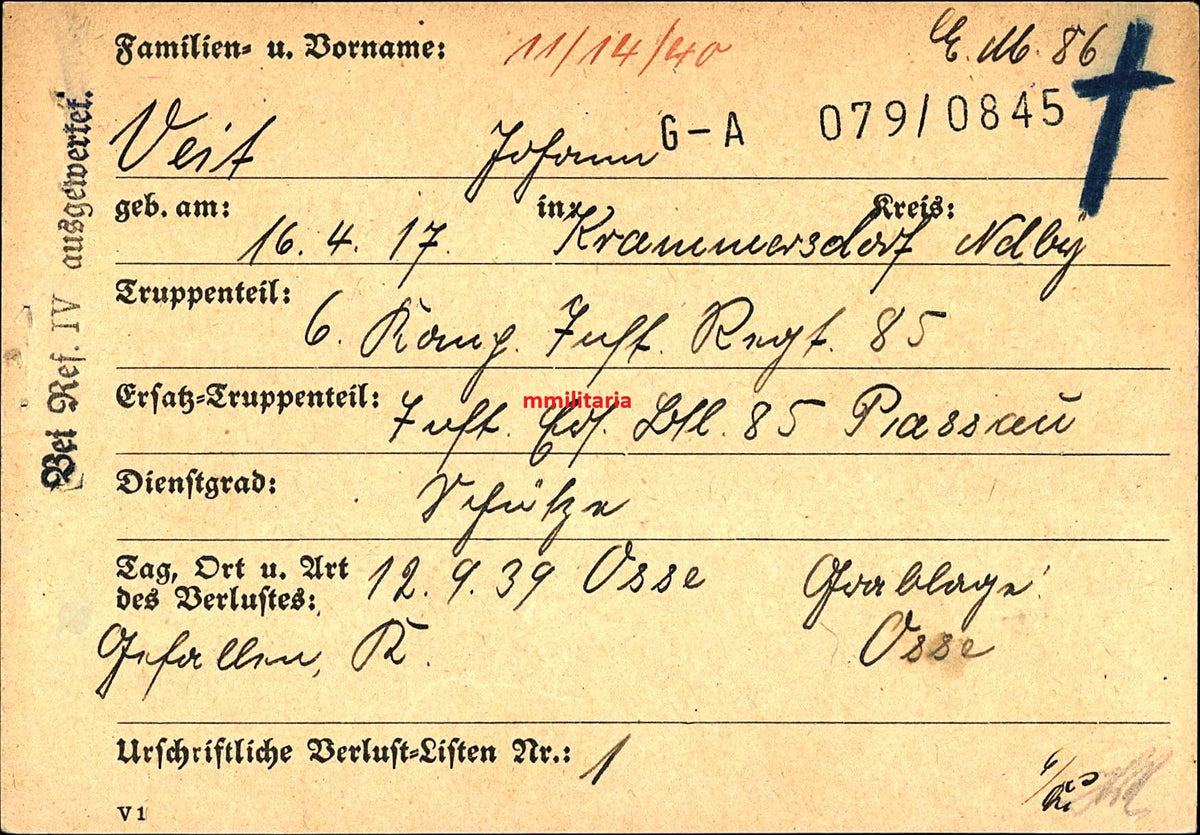 Familien- u. Vorname: 11/14/40 E.M. 86
Veit Johann G-A 079/0845
geb. am: 16.4.17. in: Krammersdorf Kreis: Ndby
Truppenteil: 6. Komp. Inft. Regt. 85
Ersatz-Truppenteil: Inft. Ers. Btl. 85 Passau
mmilitaria
Dienstgrad: Schütze
Tag, Ort u. Art 12.9.39 Osse Grablage:
des Verlustes:
Gefallen, K. Osse
Urschriftliche Verlust-Listen Nr.: 1
V 1
Bei Ref. IV ausgewertet.